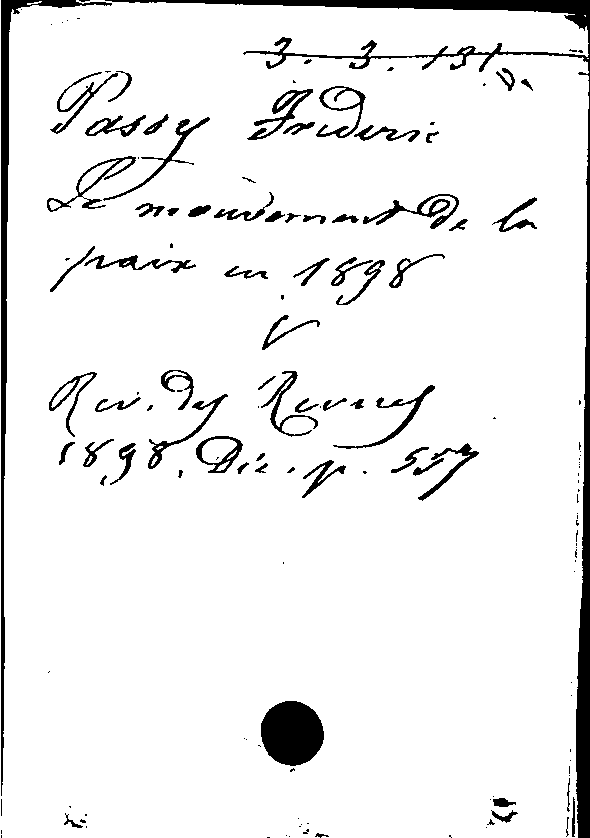 3. 3. 131
Passy Frederic
Le mouvement de la
paix en 1898
Rev. des Revues
1898. Déc. p. 557